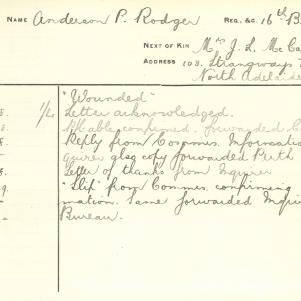 NAME Anderson P. Rodger REG. &C. 16th B
NEXT OF KIN Mrs J. L. McCa
ADDRESS 103 Strangways
North Adelaide
"Wounded"
8. 1/20 Letter acknowledged.
confirmed. forwarded
Reply from Cosgmns. Informatio
quirer also copy forwarded Perth
8. Letter of thanks from Inquirer
9. "Slip" from Commrs. confirming
mation. Same forwarded Inqui
Bureau.